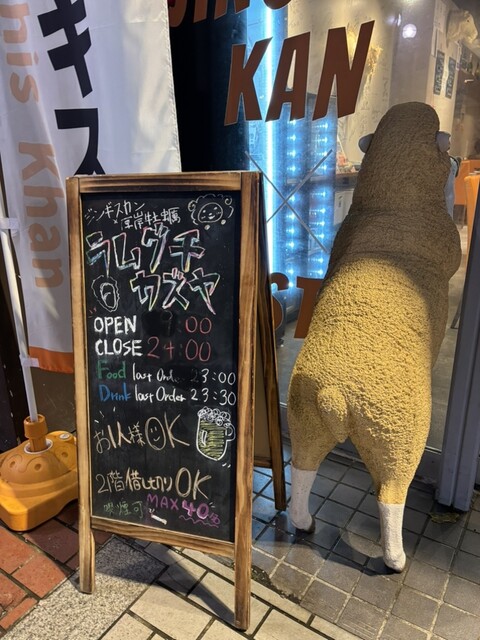 KAN
キス
his Khan
ジンギスカン
×厚岸牡蠣
ラムグチ
カズヤ
OPEN :00
CLOSE 24:00
Food last Order 23:00
Drink last Order 23:30
お1人様 OK
2階貸し切り OK
喫煙可 MAX 40名